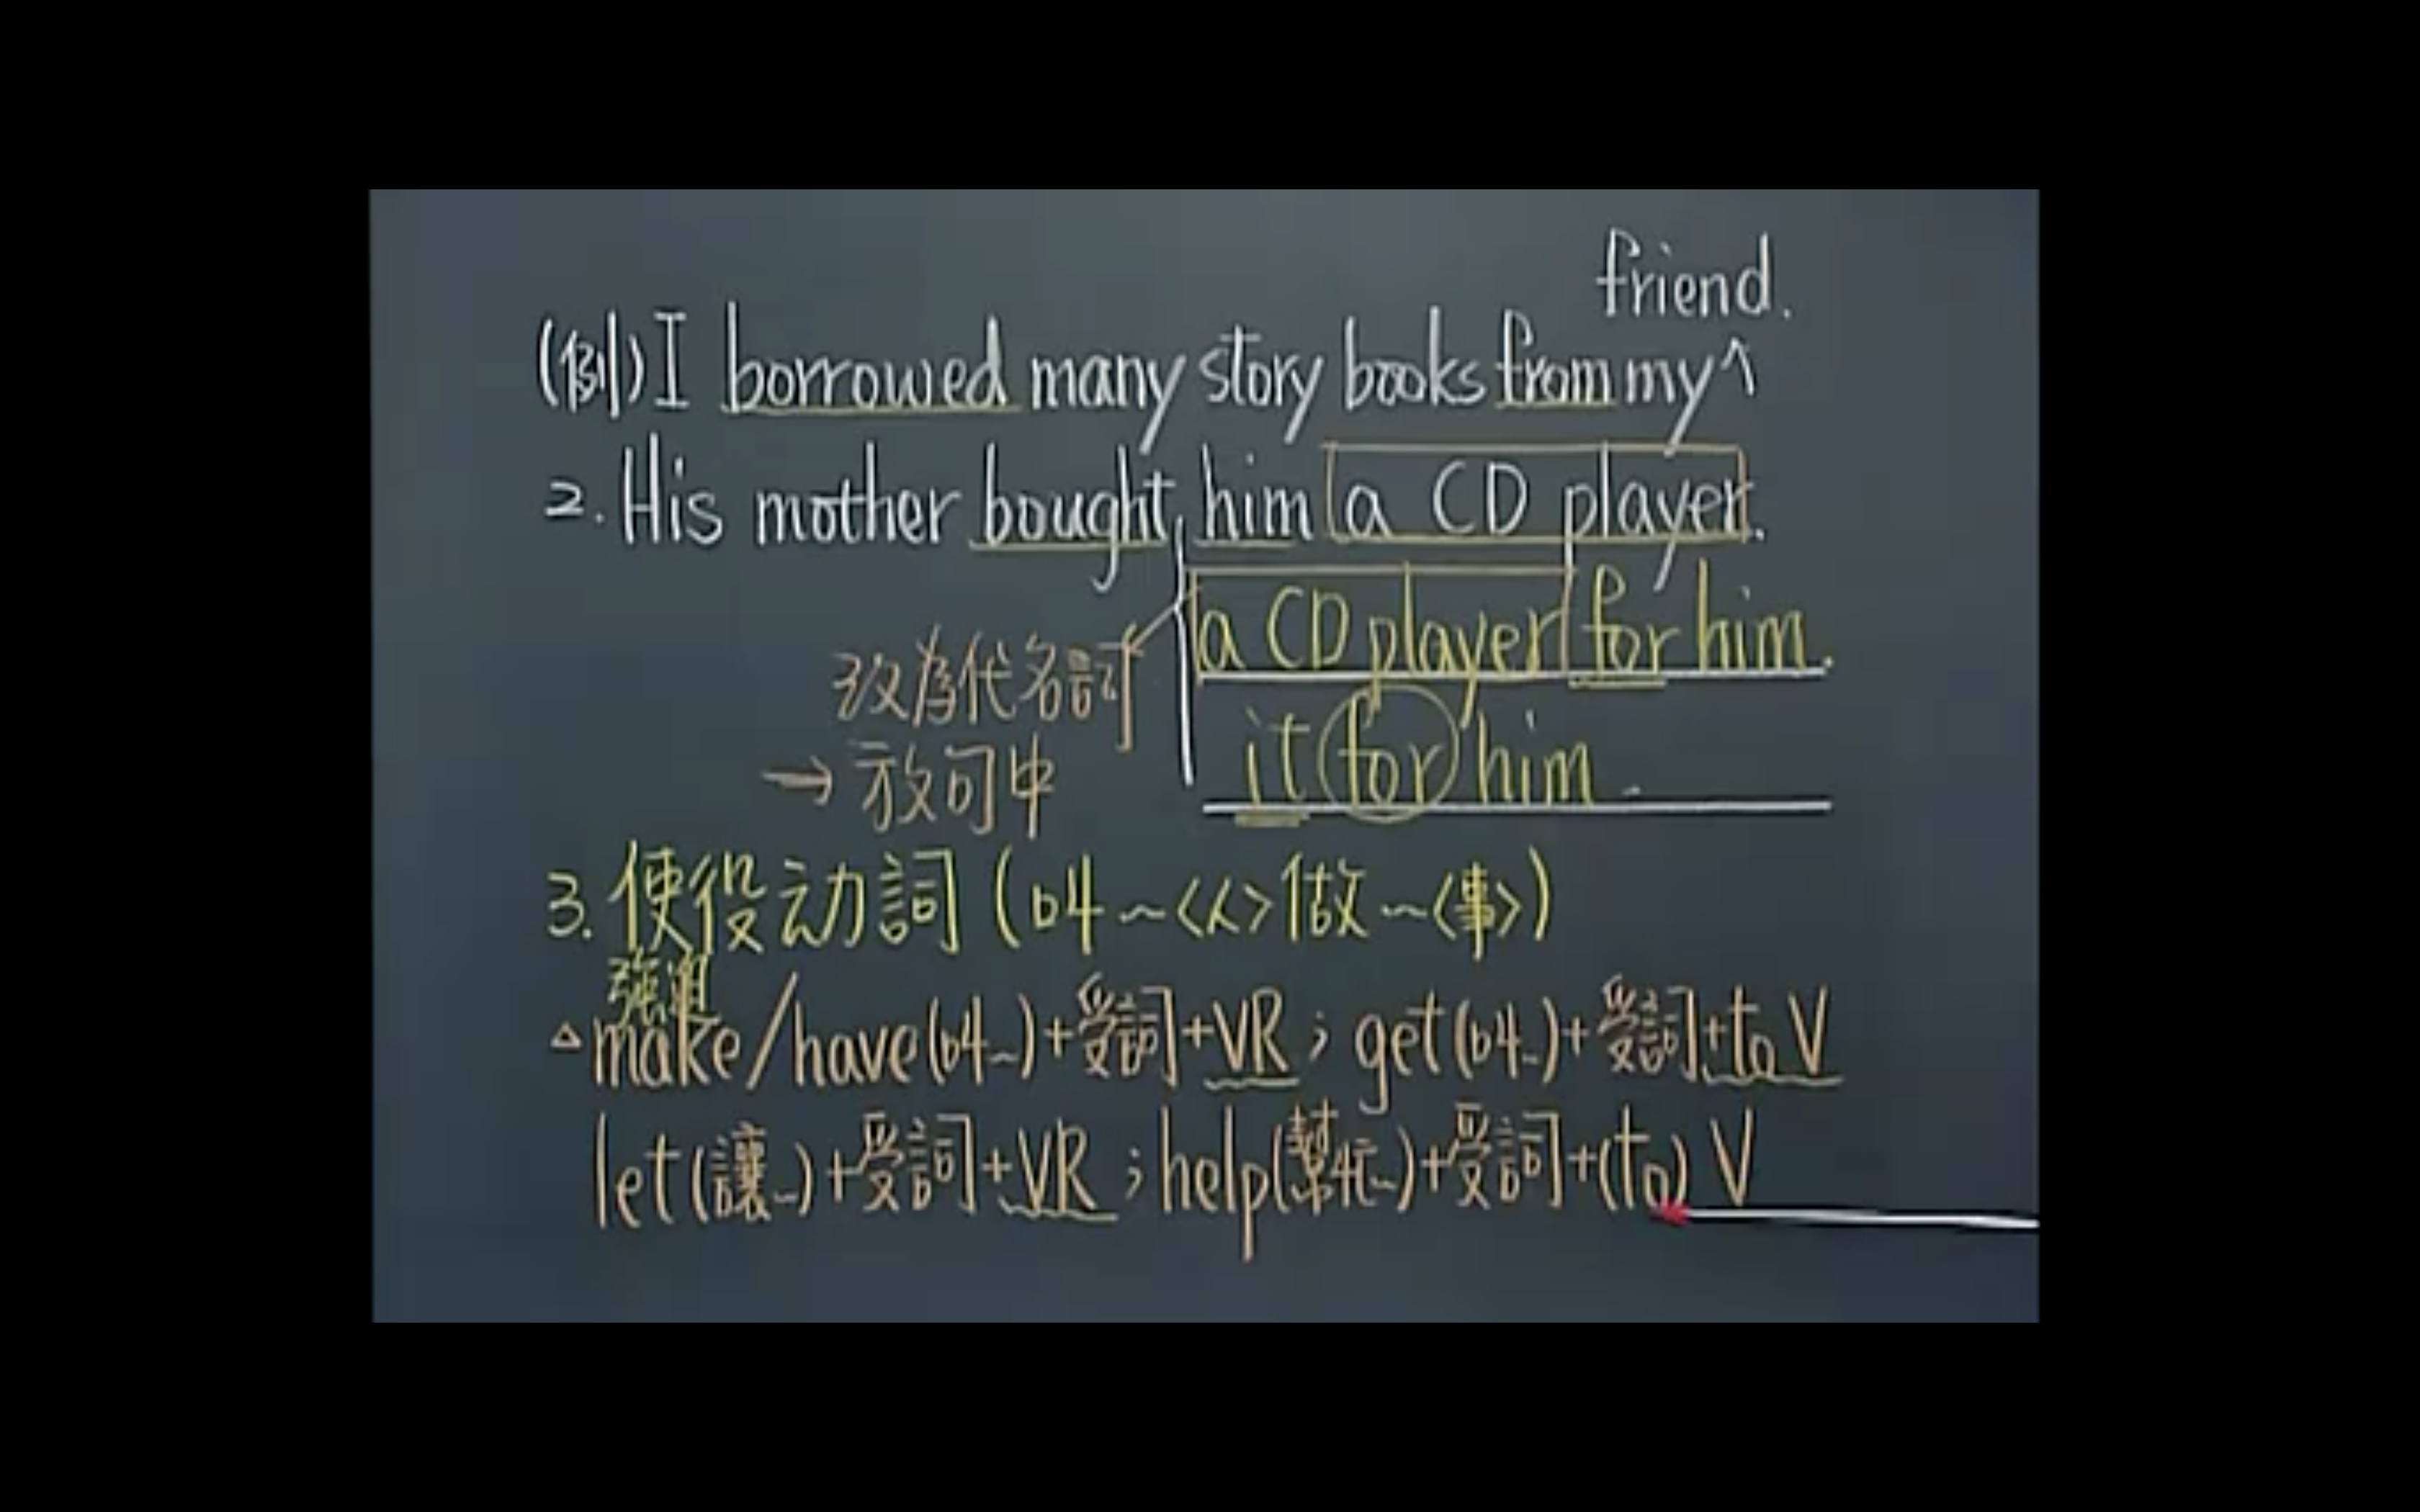 friend.
(例) I borrowed many story books from my ^
2. His mother bought him a CD player.
a CD player for him.
改為代名詞
it for him.
→ 放句中
3. 使役动詞 (叫~<人>做~<事>)
強迫
△ make/have(叫~)+受詞+VR ; get(叫~)+受詞+to V
let(讓~)+受詞+VR ; help(幫忙~)+受詞+(to) V